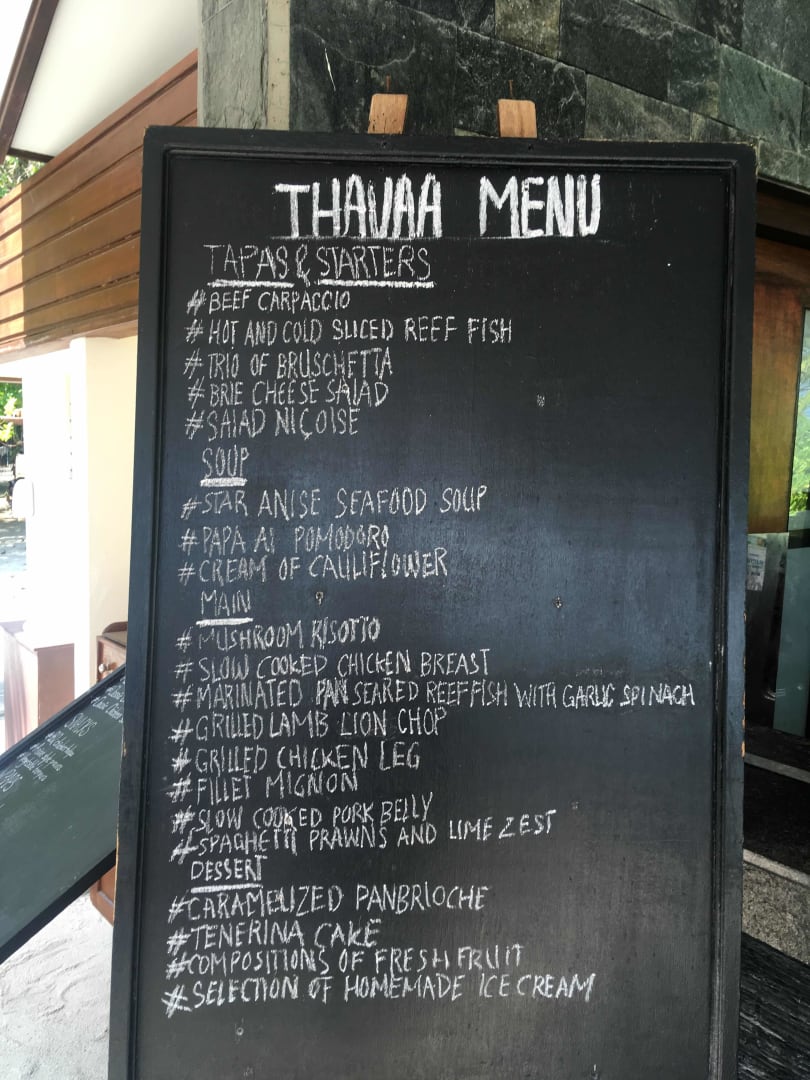 THAVAA MENU
TAPAS & STARTERS
# BEEF CARPACCIO
# HOT AND COLD SLICED REEF FISH
# TRIO OF BRUSCHETTA
# BRIE CHEESE SALAD
# SALAD NIÇOISE
SOUP
# STAR ANISE SEAFOOD SOUP
# PAPA AL POMODORO
# CREAM OF CAULIFLOWER
MAIN
# MUSHROOM RISOTTO
# SLOW COOKED CHICKEN BREAST
# MARINATED PAN SEARED REEF FISH WITH GARLIC SPINACH
# GRILLED LAMB LION CHOP
# GRILLED CHICKEN LEG
# FILLET MIGNON
# SLOW COOKED PORK BELLY
# SPAGHETTI PRAWNS AND LIME ZEST
DESSERT
# CARAMELIZED PANBRIOCHE
# TENERINA CAKE
# COMPOSITIONS OF FRESH FRUIT
# SELECTION OF HOMEMADE ICE CREAM